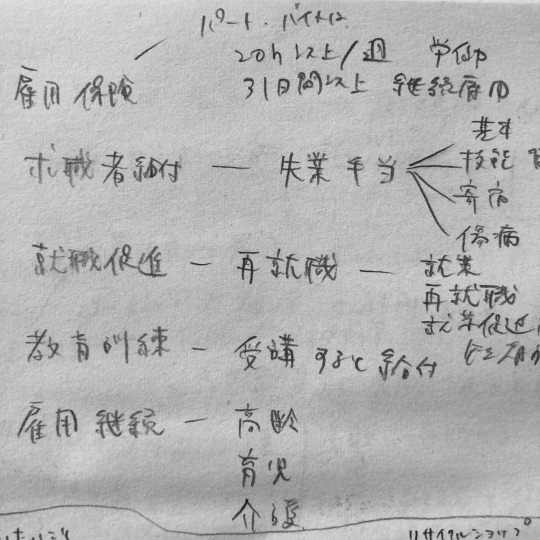 パート・バイトは
20h以上/週
雇用保険
31日間以上 継続雇用
基本
求職者給付 — 失業手当
技能
寄宿
傷病
就職促進 — 再就職 — 就業
再就職
就業促進
教育訓練 — 受講すると給付
雇用継続 — 高齢
育児
介護
リサイクルショップ